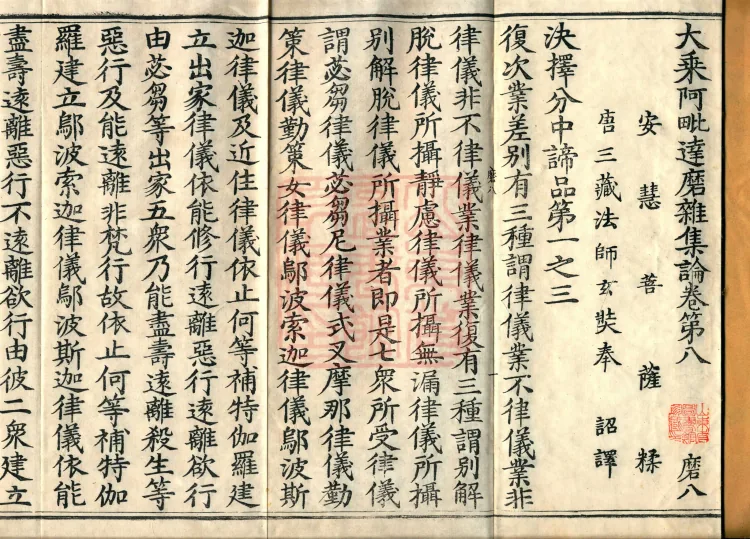 大乘阿毗達磨雜集論卷第八 磨八
安慧菩薩糅
唐三藏法師玄奘奉 詔譯
決擇分中諦品第一之三
復次業差別有三種謂律儀業不律儀業非
律儀非不律儀業律儀業復有三種謂別解
磨八
脫律儀所攝靜慮律儀所攝無漏律儀所攝
別解脫律儀所攝業者即是七眾所受律儀
謂苾芻律儀苾芻尼律儀式叉摩那律儀勤
策律儀勤策女律儀鄔波索迦律儀鄔波斯
迦律儀及近住律儀依止何等補特伽羅建
立出家律儀依能修行遠離惡行遠離欲行
由苾芻等出家五眾乃能盡壽遠離殺生等
惡行及能遠離非梵行故依止何等補特伽
羅建立鄔波索迦律儀鄔波斯迦律儀依能
盡壽遠離惡行不遠離欲行由彼二眾建立